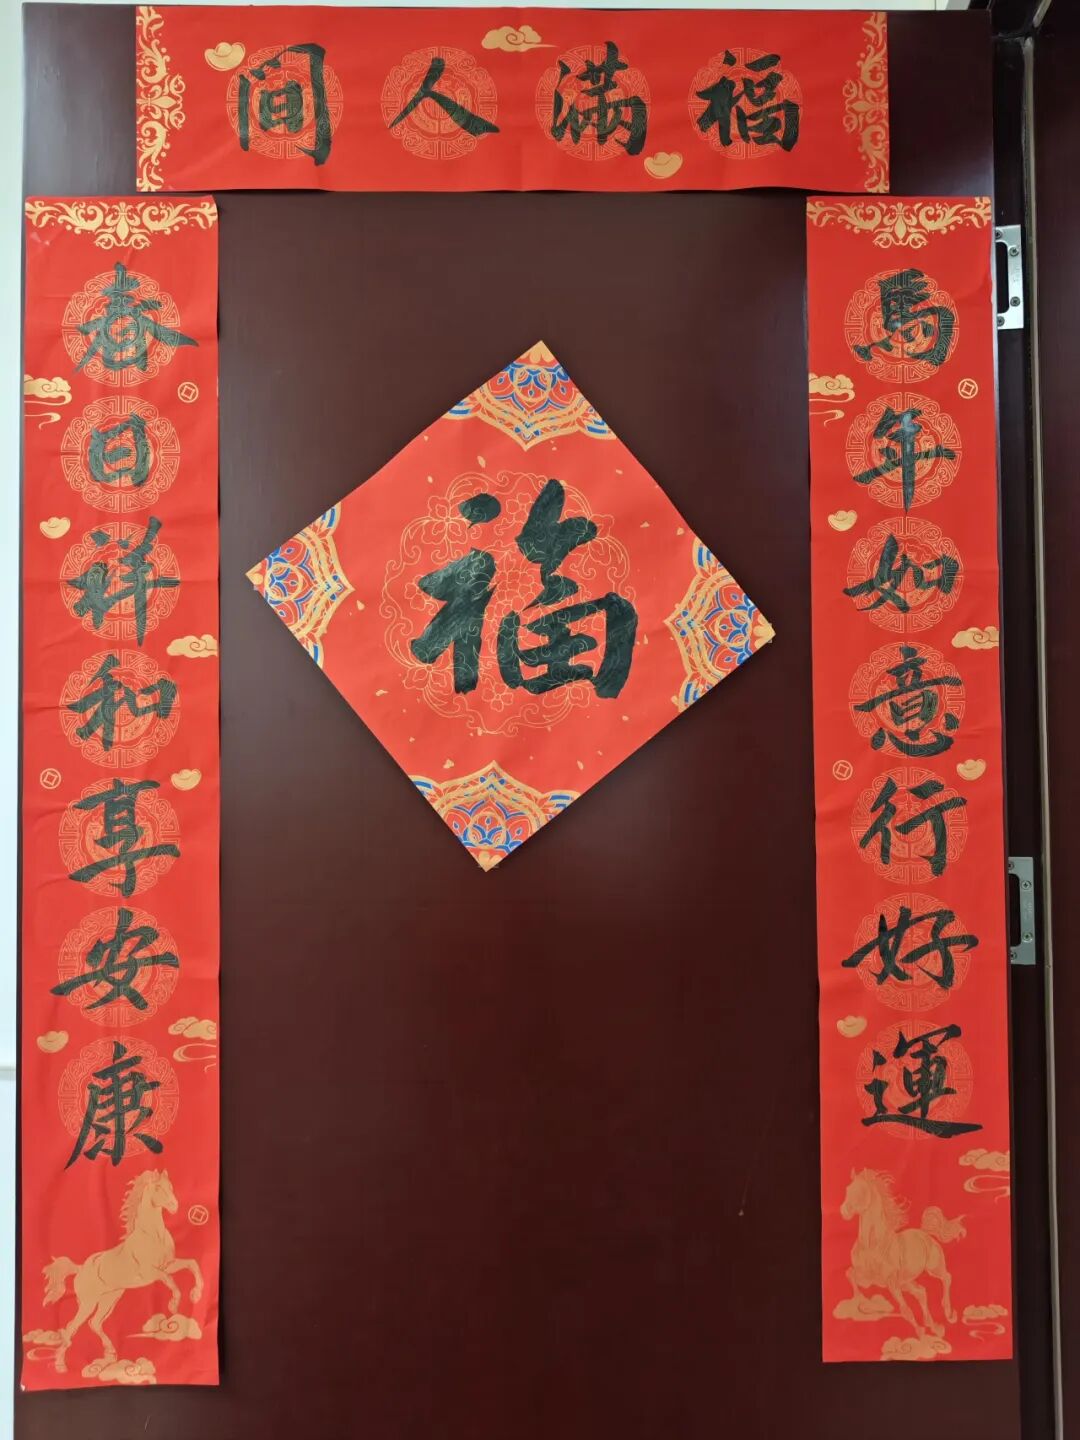 福滿人間
馬年如意行好運
春日祥和享安康
福